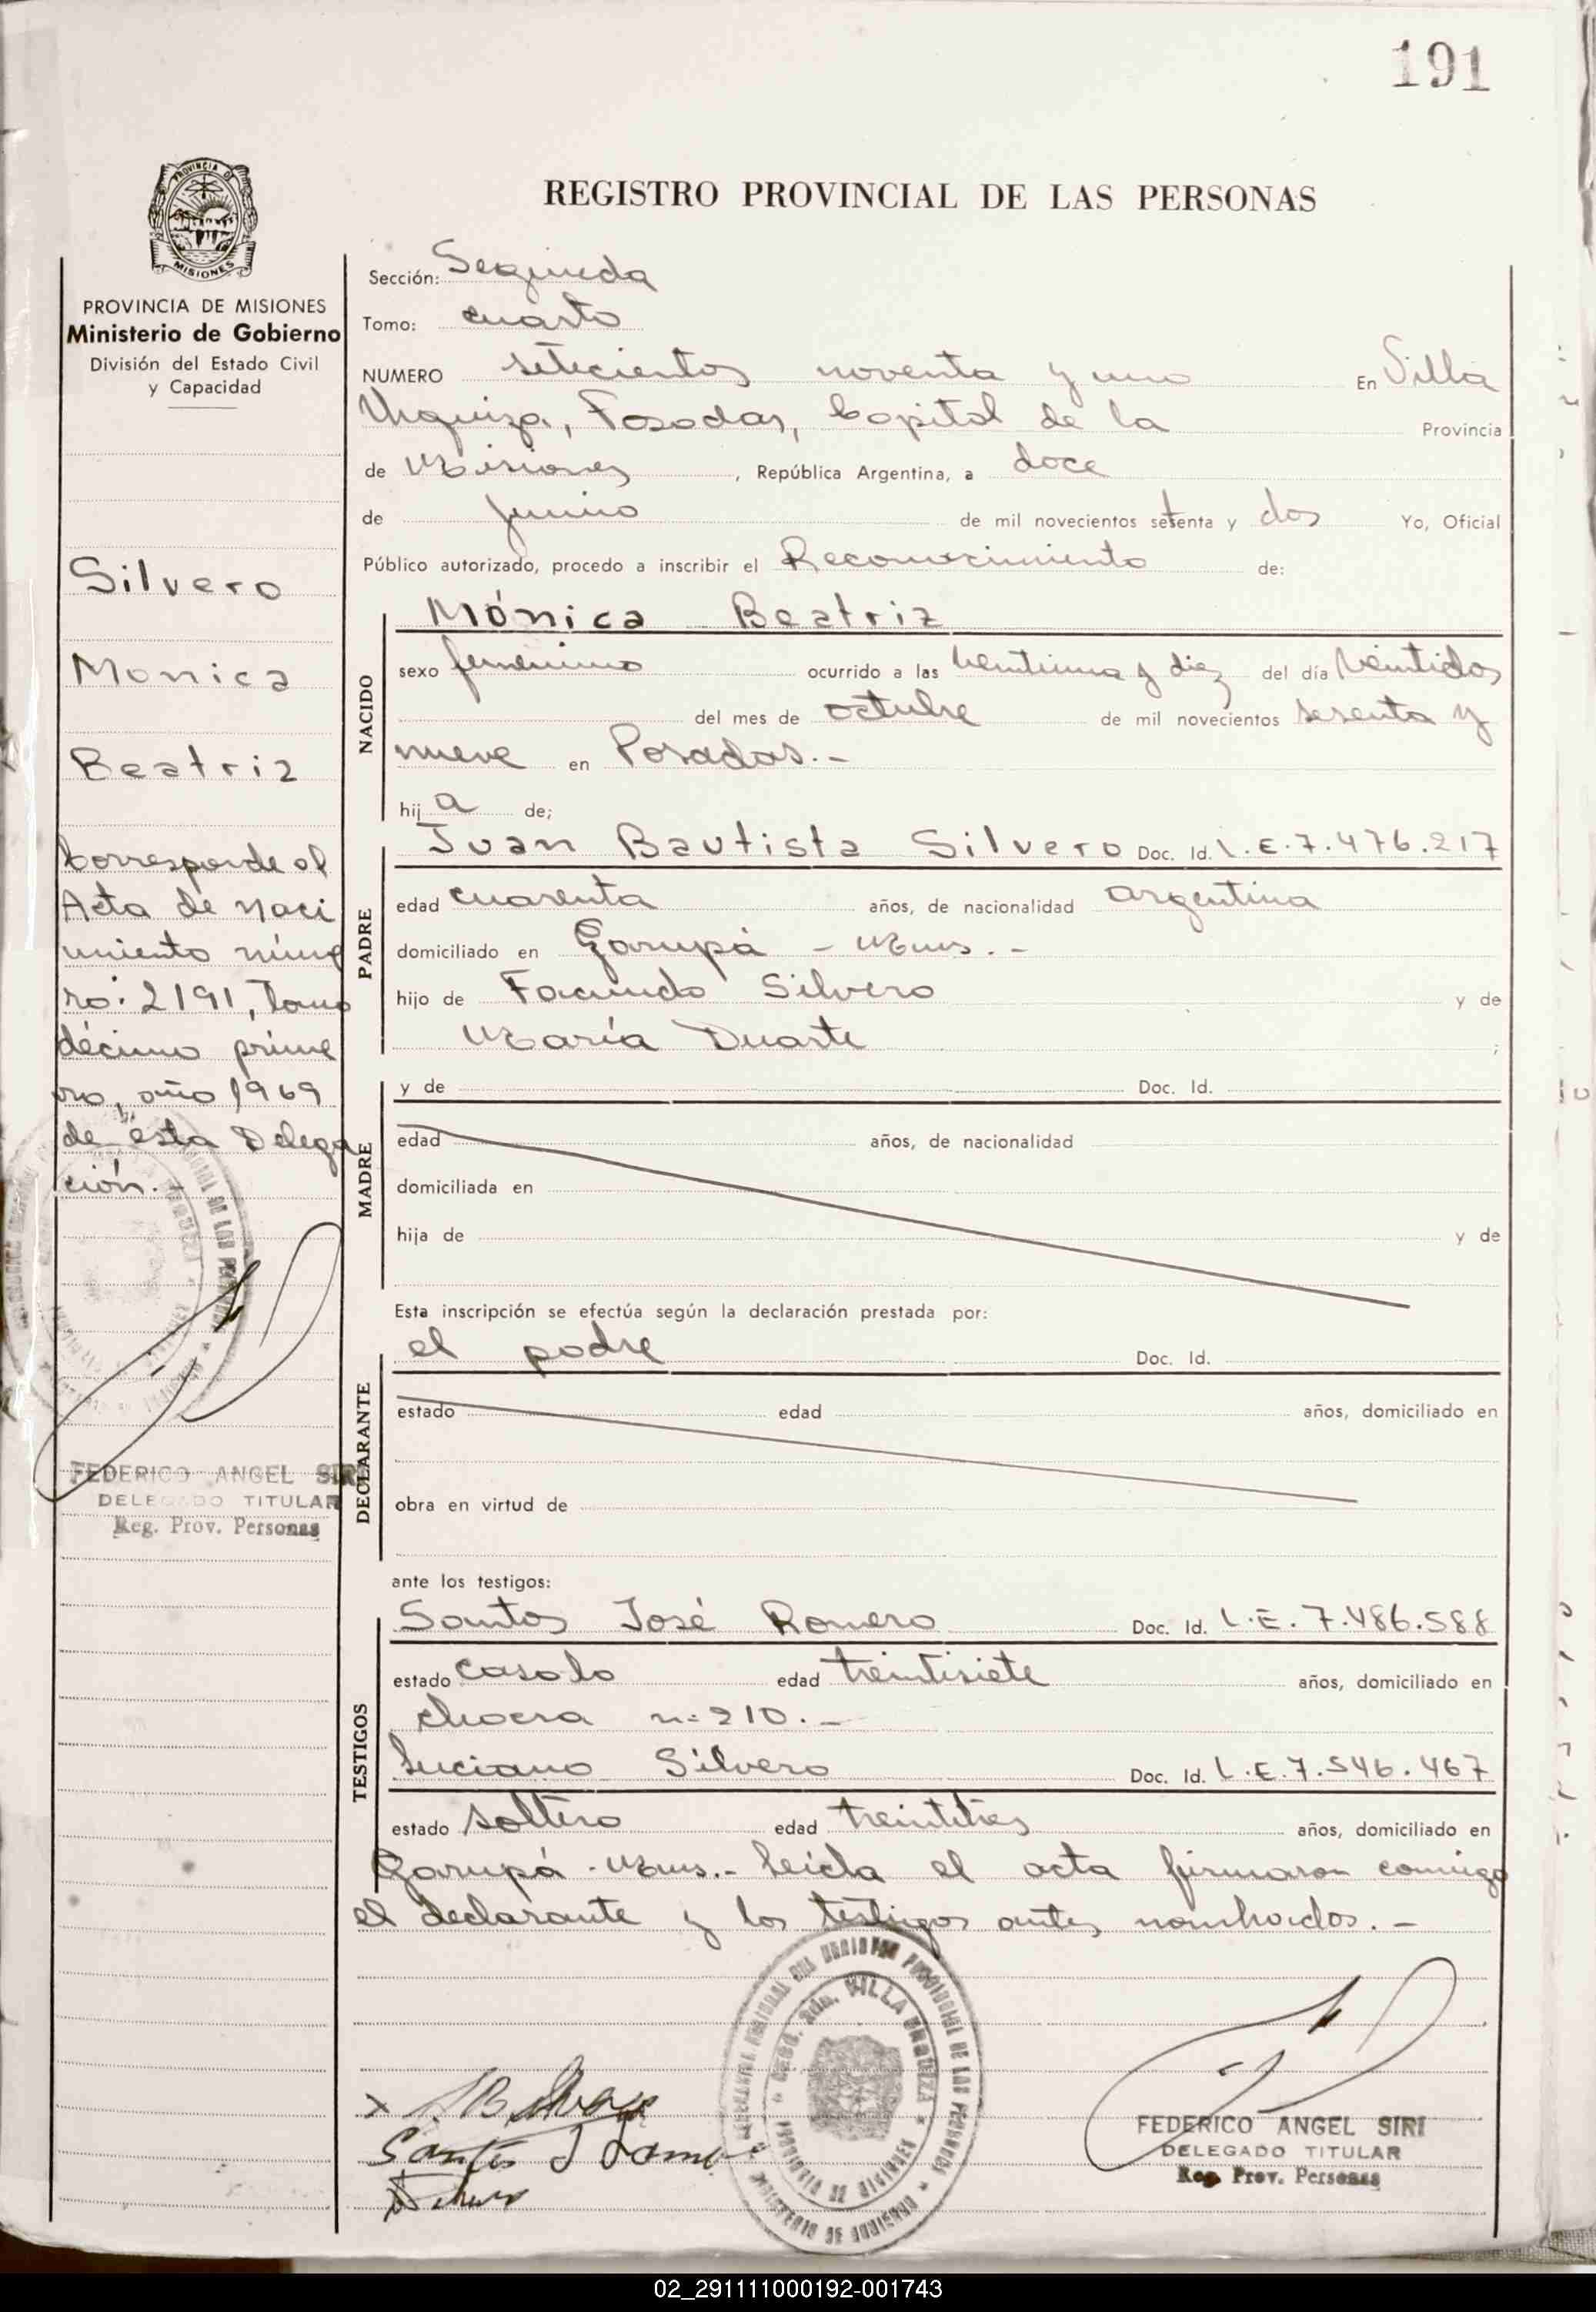 191
REGISTRO PROVINCIAL DE LAS PERSONAS
PROVINCIA DE MISIONES
Ministerio de Gobierno
División del Estado Civil
y Capacidad
Silvero
Monica
Beatriz
Corresponde al
Acta de naci
miento núme
ro: 2191, Tomo
décimo prime
ro, año 1969
de ésta Delega
ción.-
FEDERICO ANGEL SIRI
DELEGADO TITULAR
Reg. Prov. Personas
Sección: Segunda
Tomo: cuarto
NUMERO setecientos noventa y uno En Villa
Urquiza, Posadas, Capital de la Provincia
de Misiones, República Argentina, a doce
de junio de mil novecientos setenta y dos Yo, Oficial
Público autorizado, procedo a inscribir el Reconocimiento de:
NACIDO
Mónica Beatriz
sexo femenino ocurrido a las veintiuna y diez del día veintidos
del mes de octubre de mil novecientos sesenta y
nueve en Posadas.-
hija de;
PADRE
Juan Bautista Silvero Doc. Id. L.E.7.476.217
edad cuarenta años, de nacionalidad argentina
domiciliado en Garupá - Mnes.-
hijo de Facundo Silvero y de
María Duarte ;
MADRE
y de Doc. Id.
edad años, de nacionalidad
domiciliada en
hija de y de
Esta inscripción se efectúa según la declaración prestada por:
DECLARANTE
el padre Doc. Id.
estado edad años, domiciliado en
obra en virtud de
ante los testigos:
TESTIGOS
Santos José Romero Doc. Id. L.E. 7.486.588
estado casado edad treintisiete años, domiciliado en
chacra n: 210.-
Luciano Silvero Doc. Id. L.E.7.546.467
estado soltero edad treintitres años, domiciliado en
Garupá - Mnes.- Leída el acta firmaron conmigo
el declarante y los testigos antes nombrados.-
FEDERICO ANGEL SIRI
DELEGADO TITULAR
Reg. Prov. Personas
02_291111000192-001743